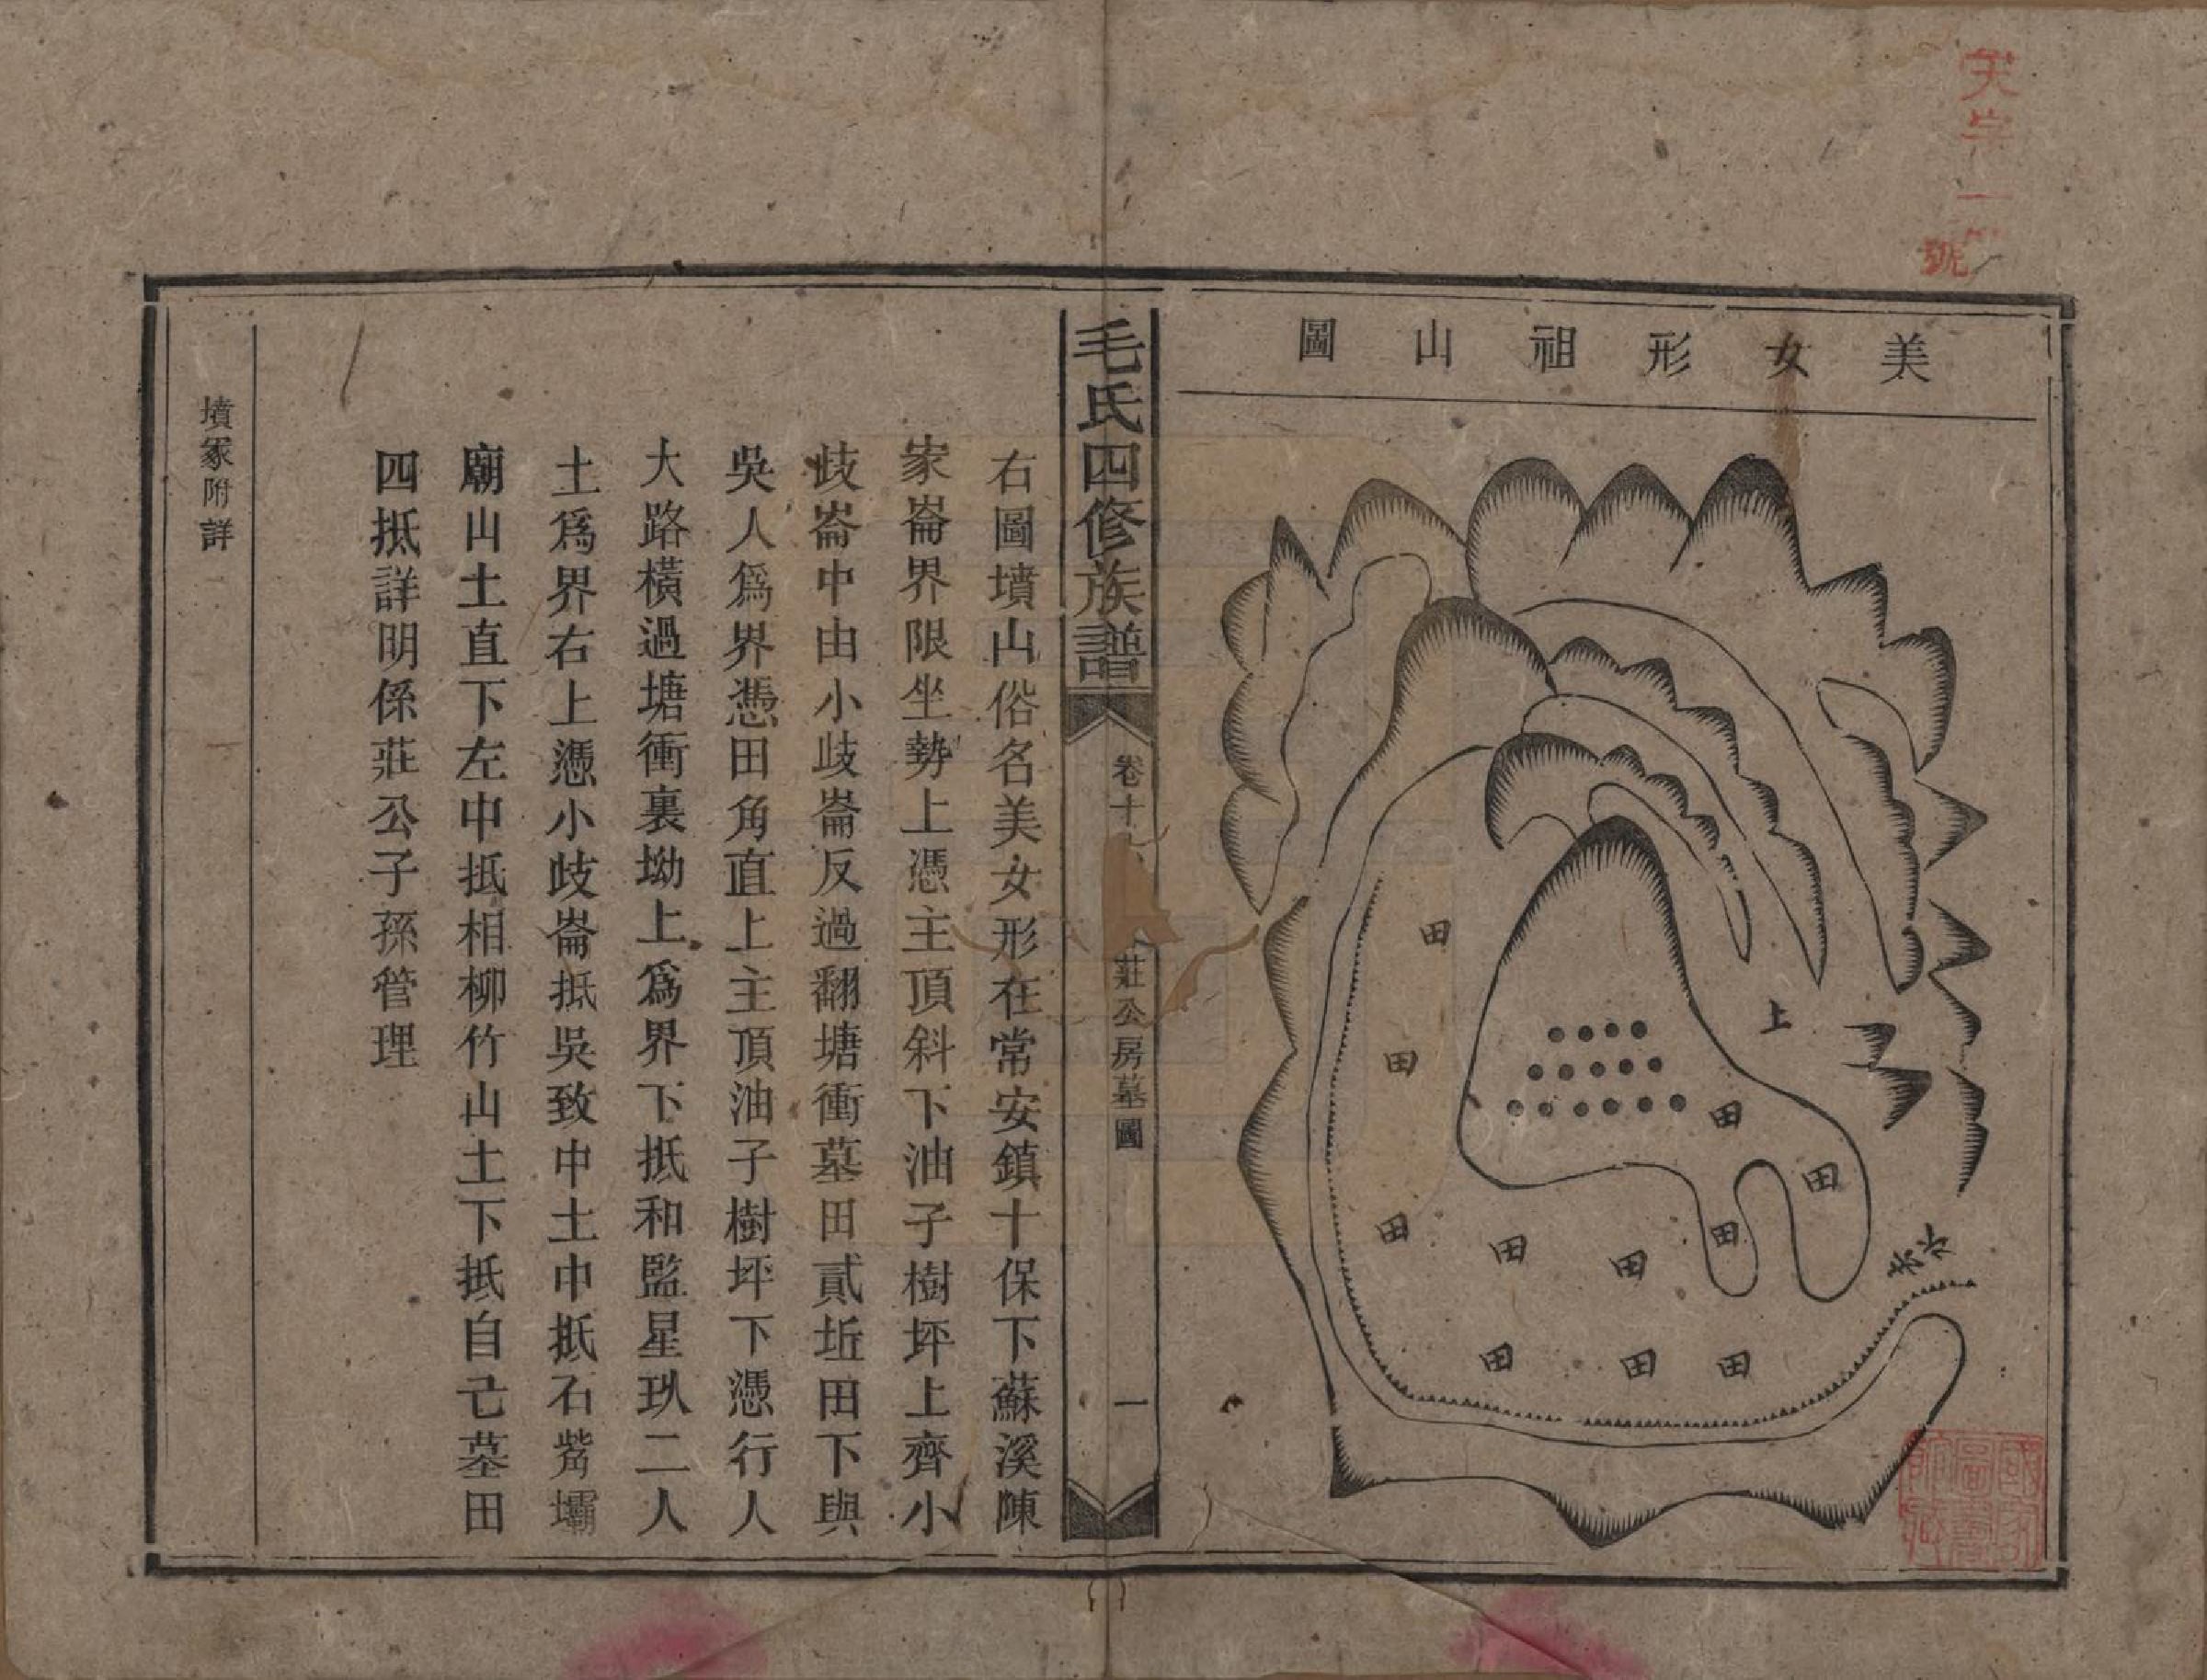 天字一
號
美女形祖山圖
上
水
田
田
田
田
田
田
田
田
田
田
田
國家圖書館藏
毛氏四修族譜
卷十
莊公房墓圖
一
右圖墳山俗名美女形在常安鎮十保下蘇溪陳
家崙界限坐勢上憑主頂斜下油子樹坪上齊小
歧崙中由小歧崙反過翻塘衝墓田貳坵田下與
吳人爲界憑田角直上主頂油子樹坪下憑行人
大路橫過塘衝裏坳上爲界下抵和監星玖二人
土爲界右上憑小歧崙抵吳致中土中抵石觜壩
廟山土直下左中抵相柳竹山土下抵自己墓田
四抵詳明係莊公子孫管理
墳冢附詳